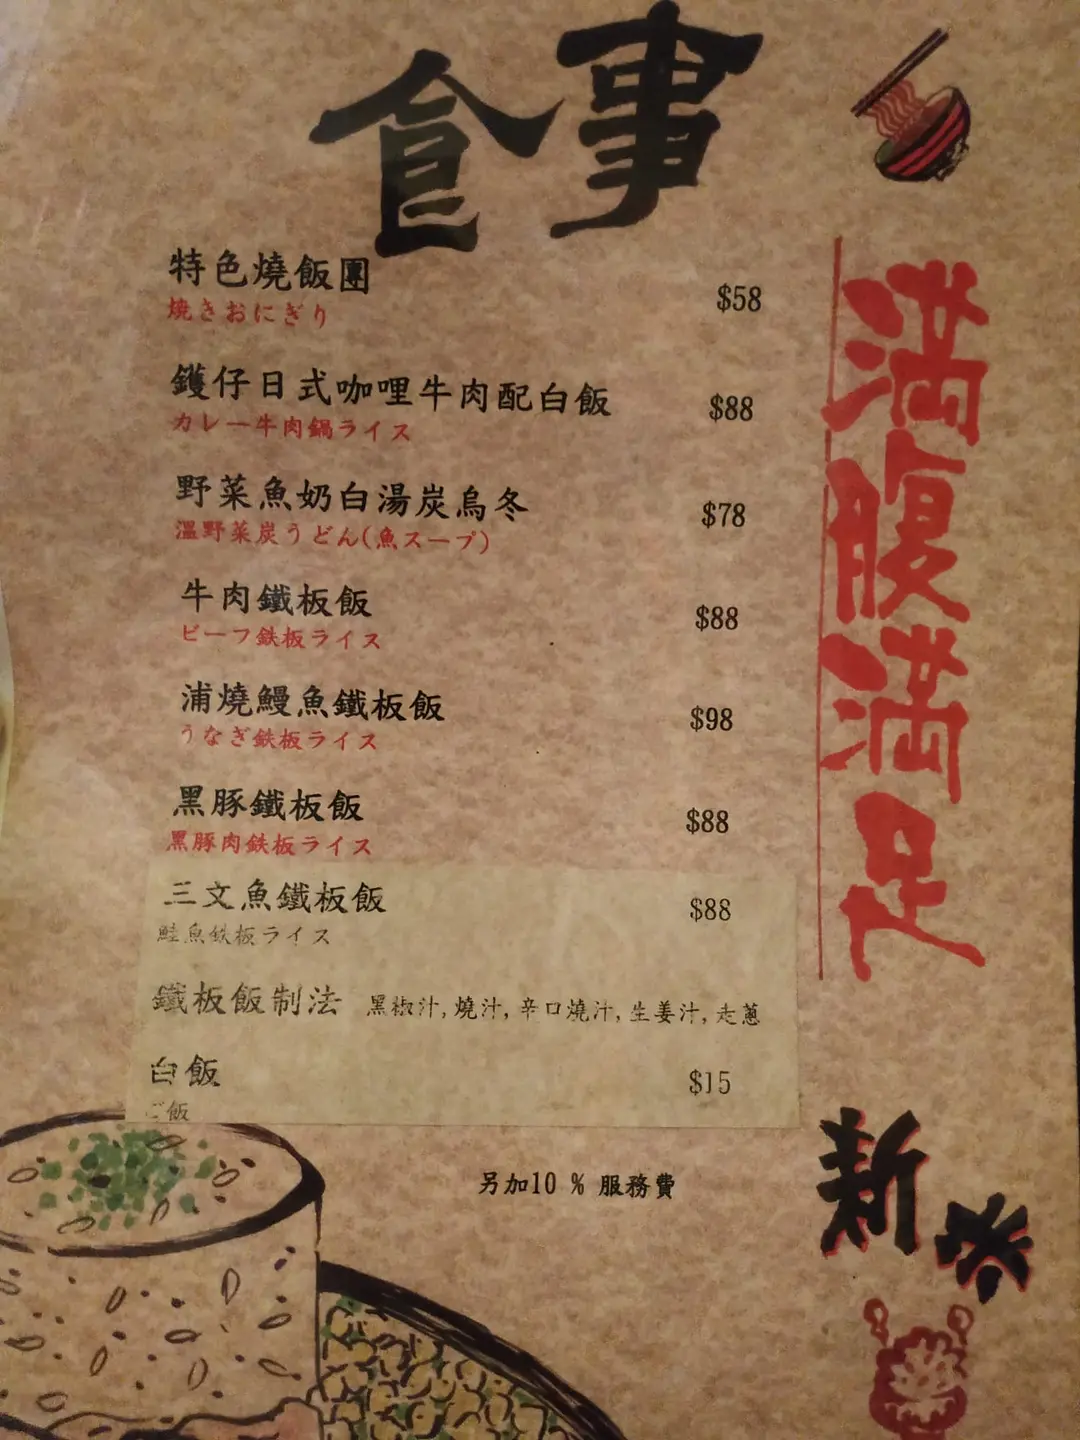 食事
特色燒飯團 $58
焼きおにぎり
鑊仔日式咖哩牛肉配白飯 $88
カレー牛肉鍋ライス
野菜魚奶白湯炭烏冬 $78
溫野菜炭うどん(魚スープ)
牛肉鐵板飯 $88
ビーフ鉄板ライス
浦燒鰻魚鐵板飯 $98
うなぎ鉄板ライス
黑豚鐵板飯 $88
黑豚肉鉄板ライス
三文魚鐵板飯 $88
鮭魚鉄板ライス
鐵板飯制法 黑椒汁,燒汁,辛口燒汁,生姜汁,走蔥
白飯 $15
ご飯
另加10 % 服務費
満腹満足
新米